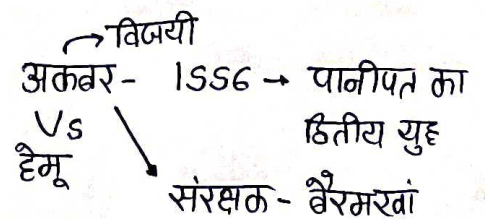 विजयी
अकबर - 1556 → पानीपत का
Vs द्वितीय युद्ध
हेमू
संरक्षक - बैरमखां